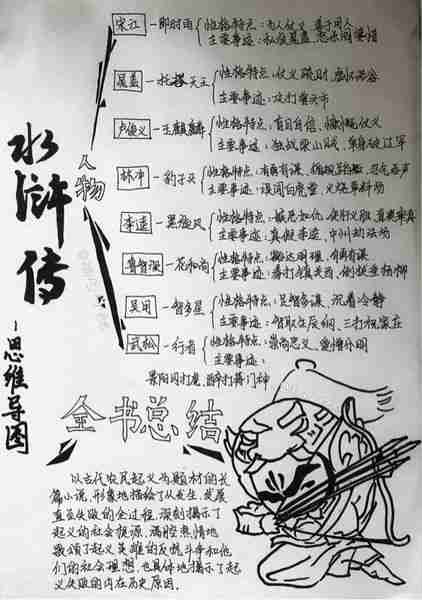 水浒传
-思维导图
人物
宋江 - 即时雨
性格特点：为人仗义，善于用人
主要事迹：私放晁盖，怒杀阎婆惜
晁盖 - 托塔天王
性格特点：仗义疏财
主要事迹：攻打曾头市
卢俊义 - 玉麒麟
性格特点：盲目自信，慷慨仗义
主要事迹：独战梁山贼，单身破辽军
林冲 - 豹子头
性格特点：有勇有谋，循规蹈矩，忍气吞声
主要事迹：误闯白虎堂，火烧草料场
李逵 - 黑旋风
性格特点：嫉恶如仇，侠肝义胆，直爽率真
主要事迹：真假李逵，中州劫法场
鲁智深 - 花和尚
性格特点：豁达明理，有勇有谋
主要事迹：拳打镇关西，倒拔垂杨柳
吴用 - 智多星
性格特点：足智多谋，沉着冷静
主要事迹：智取生辰纲，三打祝家庄
武松 - 行者
性格特点：崇尚忠义，爱憎分明
主要事迹：
景阳冈打虎，醉打蒋门神
全书总结
以古代农民起义为题材的长
篇小说，形象地描绘了从发生，发展
直至失败的全过程，深刻揭示了
起义的社会根源，满腔热情地
歌颂了起义英雄的反抗斗争和他
们的社会理想，也具体地揭示了起
义失败的内在历史原因。